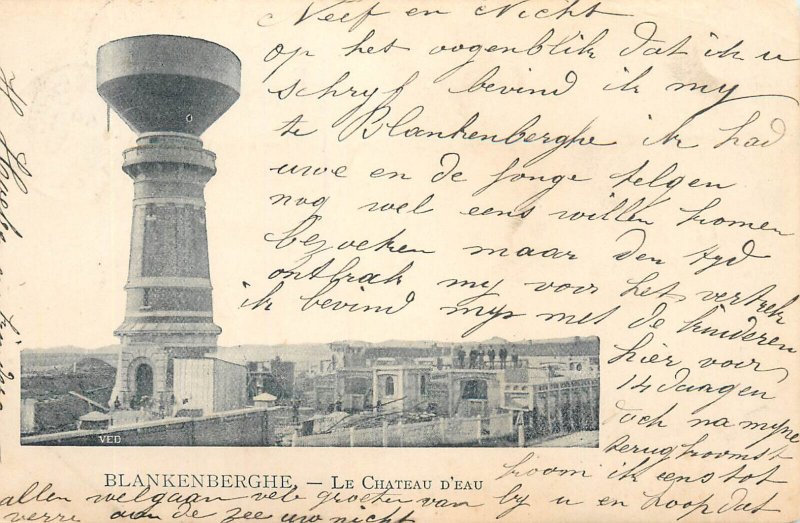 Neef en Nicht
op het oogenblik dat ik u
schryf bevind ik my
te Blankenberghe ik had
uwe en de jonge telgen
nog wel eens willen komen
bezoeken maar den tyd
ontbrak my voor het vertrek
ik bevind myn met de kinderen
hier voor
14 daagen
doch na myne
terugkoomst
koom ik eens tot
by u en hoop dat
allen welgaan vele groeten van
verre aan de zee uw nicht
VED
BLANKENBERGHE. — LE CHATEAU D'EAU